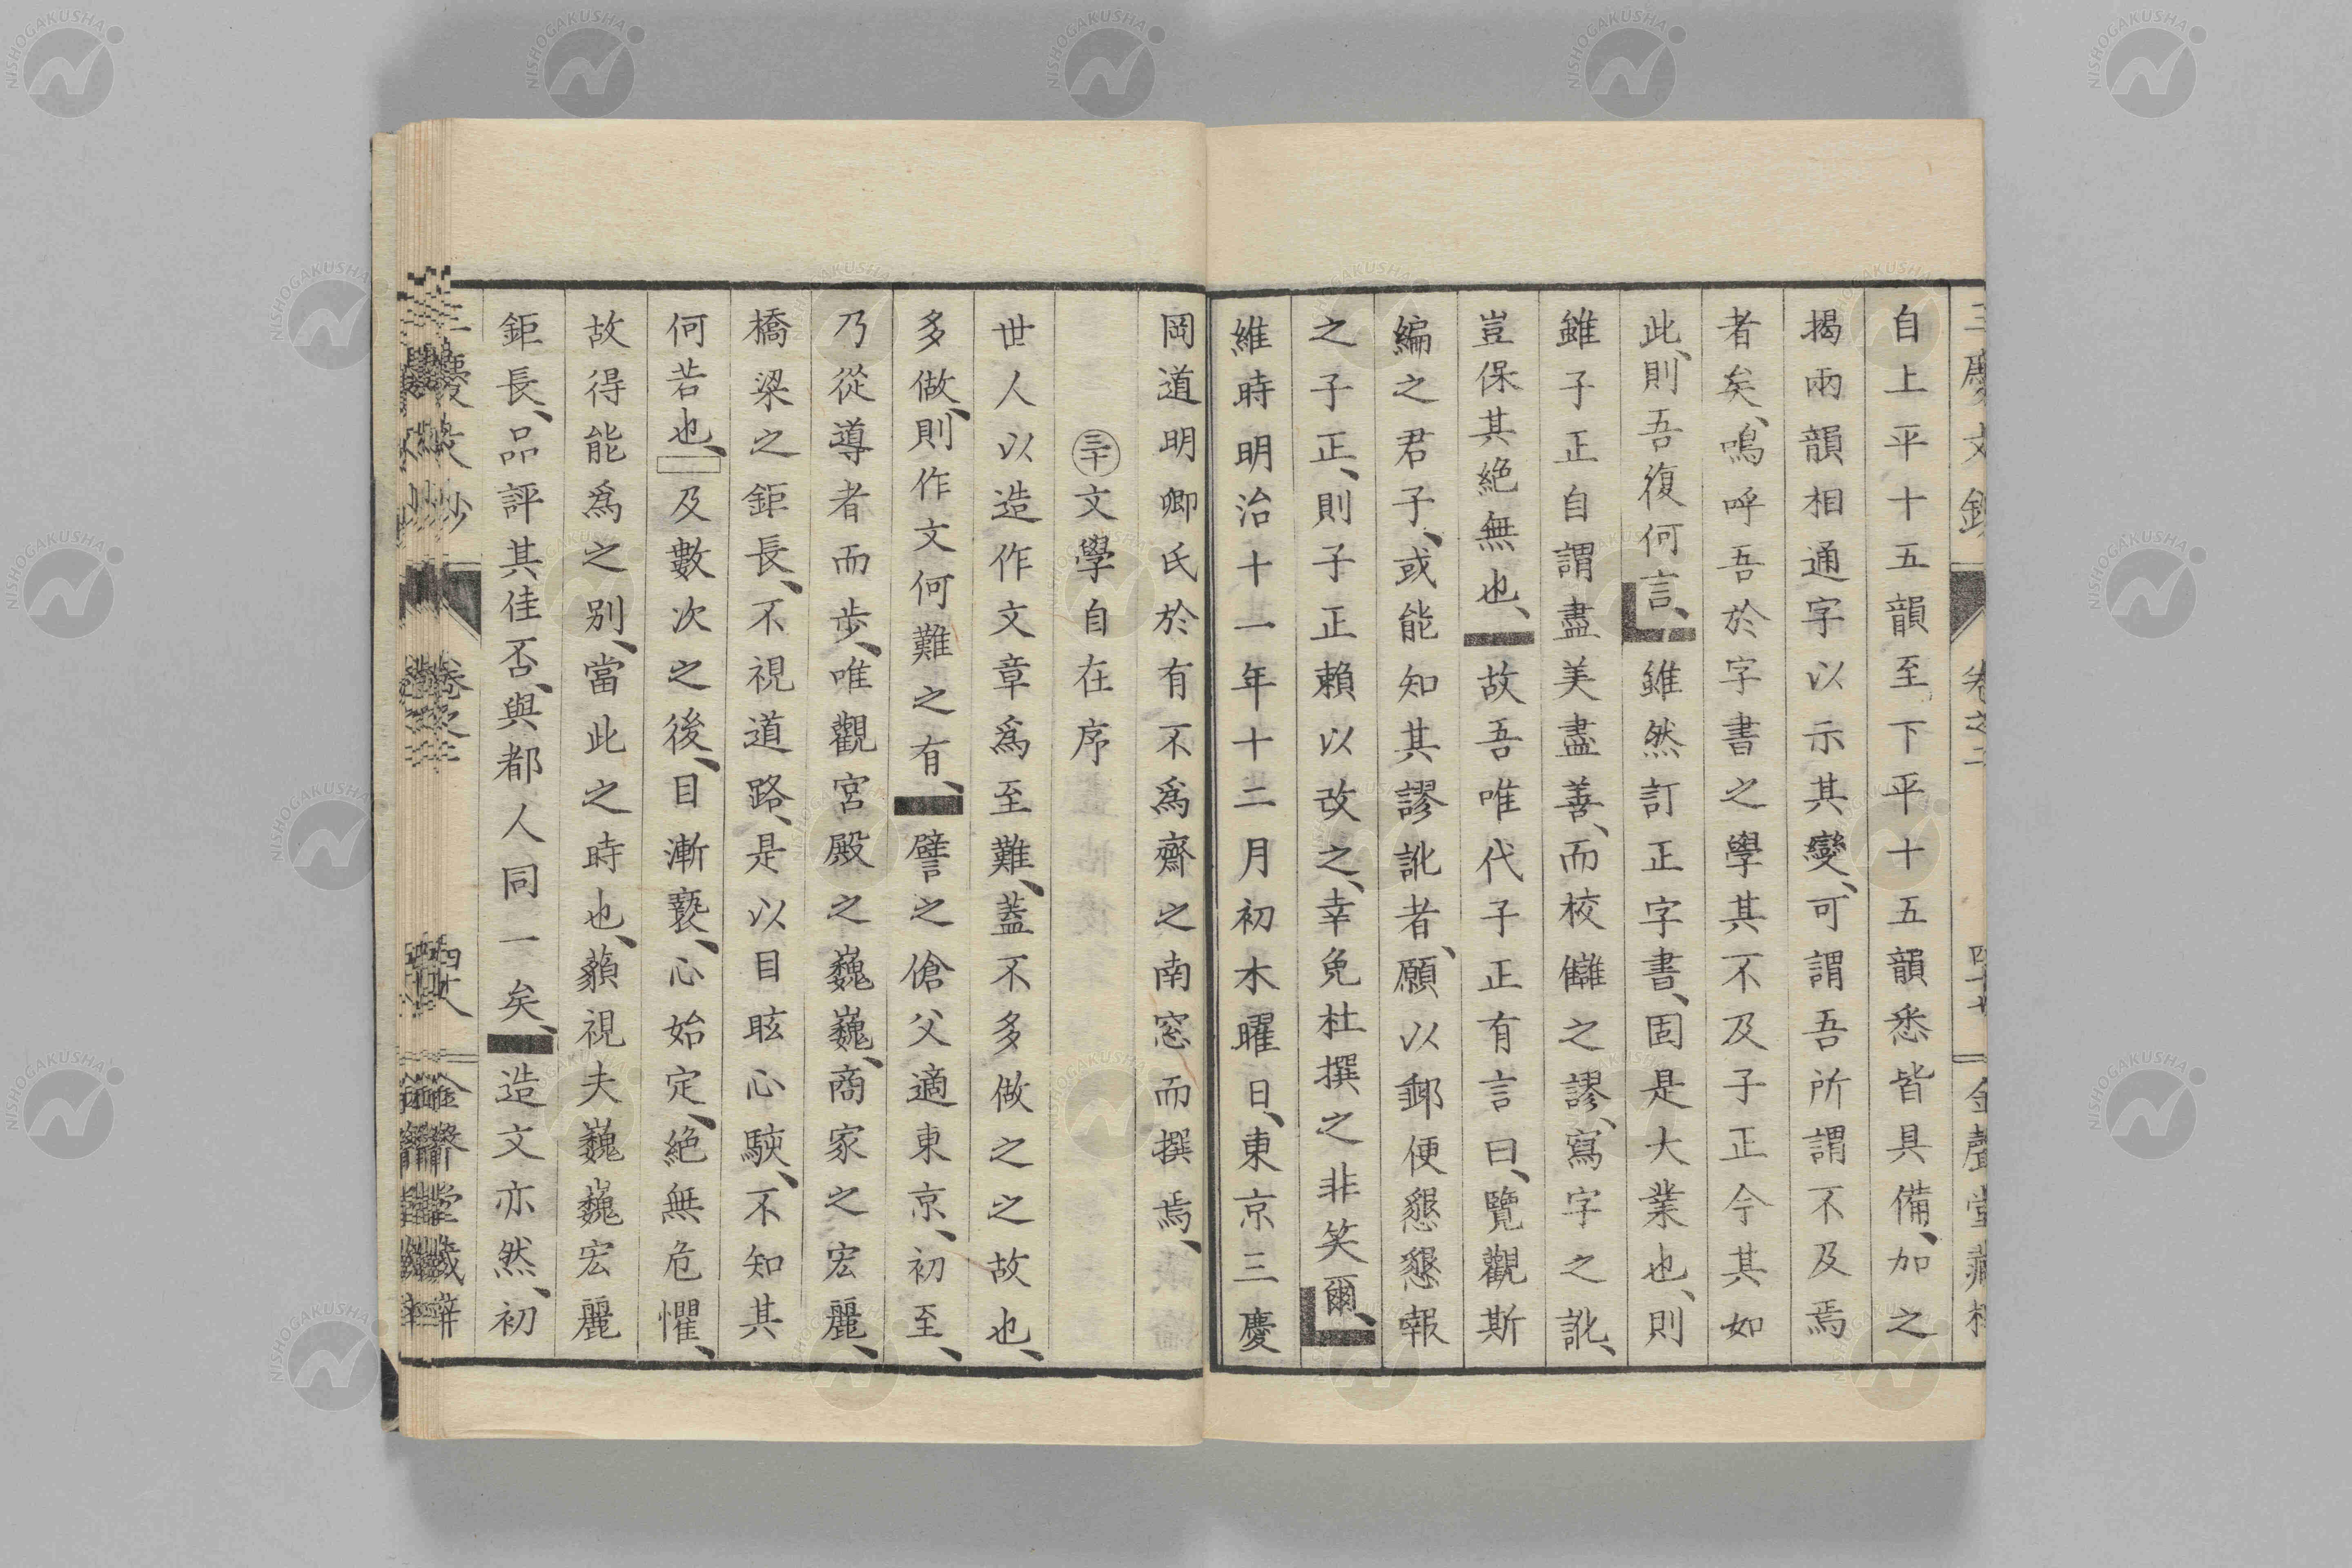 自上平十五韻至下平十五韻悉皆具備、加之
揭兩韻相通字以示其變、可謂吾所謂不及焉
者矣、嗚呼吾於字書之學其不及子正今其如
此、則吾復何言、雖然訂正字書、固是大業也、則
雖子正自謂盡美盡善、而校讎之謬、寫字之訛、
豈保其絕無也、故吾唯代子正有言曰、覽觀斯
編之君子、或能知其謬訛者、願以郵便懇懇報
之子正、則子正賴以改之、幸免杜撰之非笑爾、
維時明治十一年十二月初木曜日、東京三慶
岡道明卿氏於有不爲齋之南窓而撰焉、
㊂㊉文學自在序
世人以造作文章爲至難、蓋不多做之之故也、
多做、則作文何難之有、譬之傖父適東京、初至、
乃從導者而步、唯觀宮殿之巍巍、商家之宏麗、
橋梁之鉅長、不視道路、是以目眩心駛、不知其
何若也、及數次之後、目漸褻、心始定、絕無危懼、
故得能爲之別、當此之時也、藐視夫巍巍宏麗
鉅長、品評其佳否、與都人同一矣、造文亦然、初
卷之二
NISHOGAKUSHA